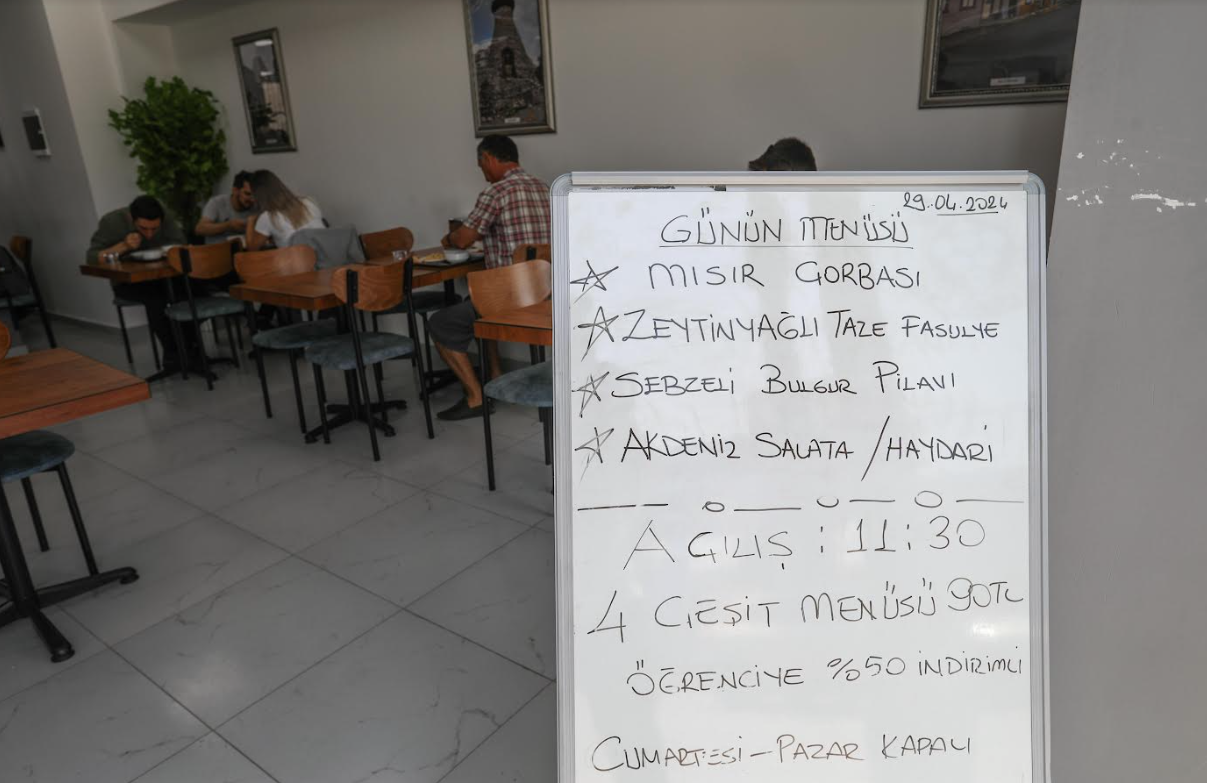 29.04.2024
GÜNÜN MENÜSÜ
MISIR ÇORBASI
ZEYTİNYAĞLI TAZE FASULYE
SEBZELİ BULGUR PİLAVI
AKDENİZ SALATA / HAYDARİ
AÇILIŞ : 11:30
4 ÇEŞİT MENÜSÜ 90TL
ÖĞRENCİYE %50 İNDİRİMLİ
CUMARTESİ - PAZAR KAPALI